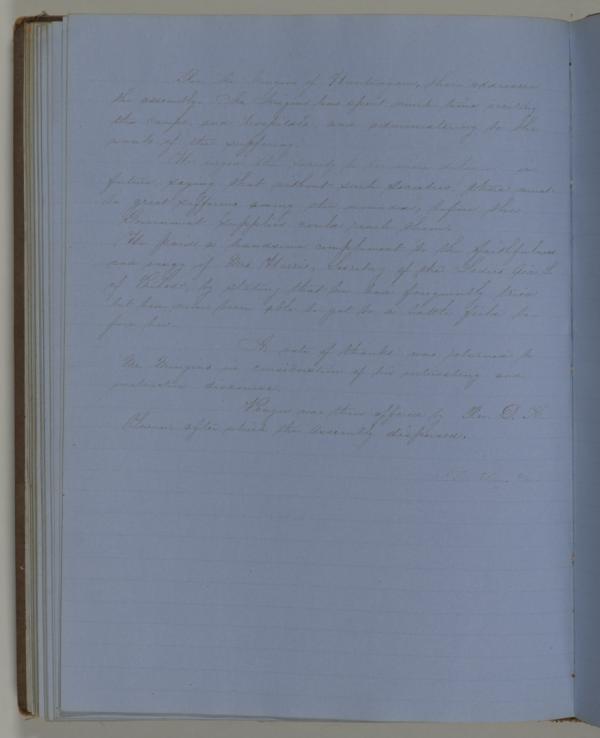 Rev Mr Guyer of Huntingdon, then addressed
the assembly. Mr has spent much time visiting
the camps and hospitals, and administering to the
wants of the suffering.
He urged the Society to in
future, saying that without such Societies, there must
be great suffering among the wounded, before the
Government Supplies could reach them.
He paid a handsome compliment to the faithfulness
and energy of Mrs Harris, Secretary of the Ladies Aid S.
of Philad. by stating that he had frequently tried
but had never been able to get to a battle field be-
fore her.
A vote of thanks was returned to
Mr in consideration of his interesting and
instructive discourse.
Prayer was then offered by Rev. D. H.
after which the assembly dispersed.